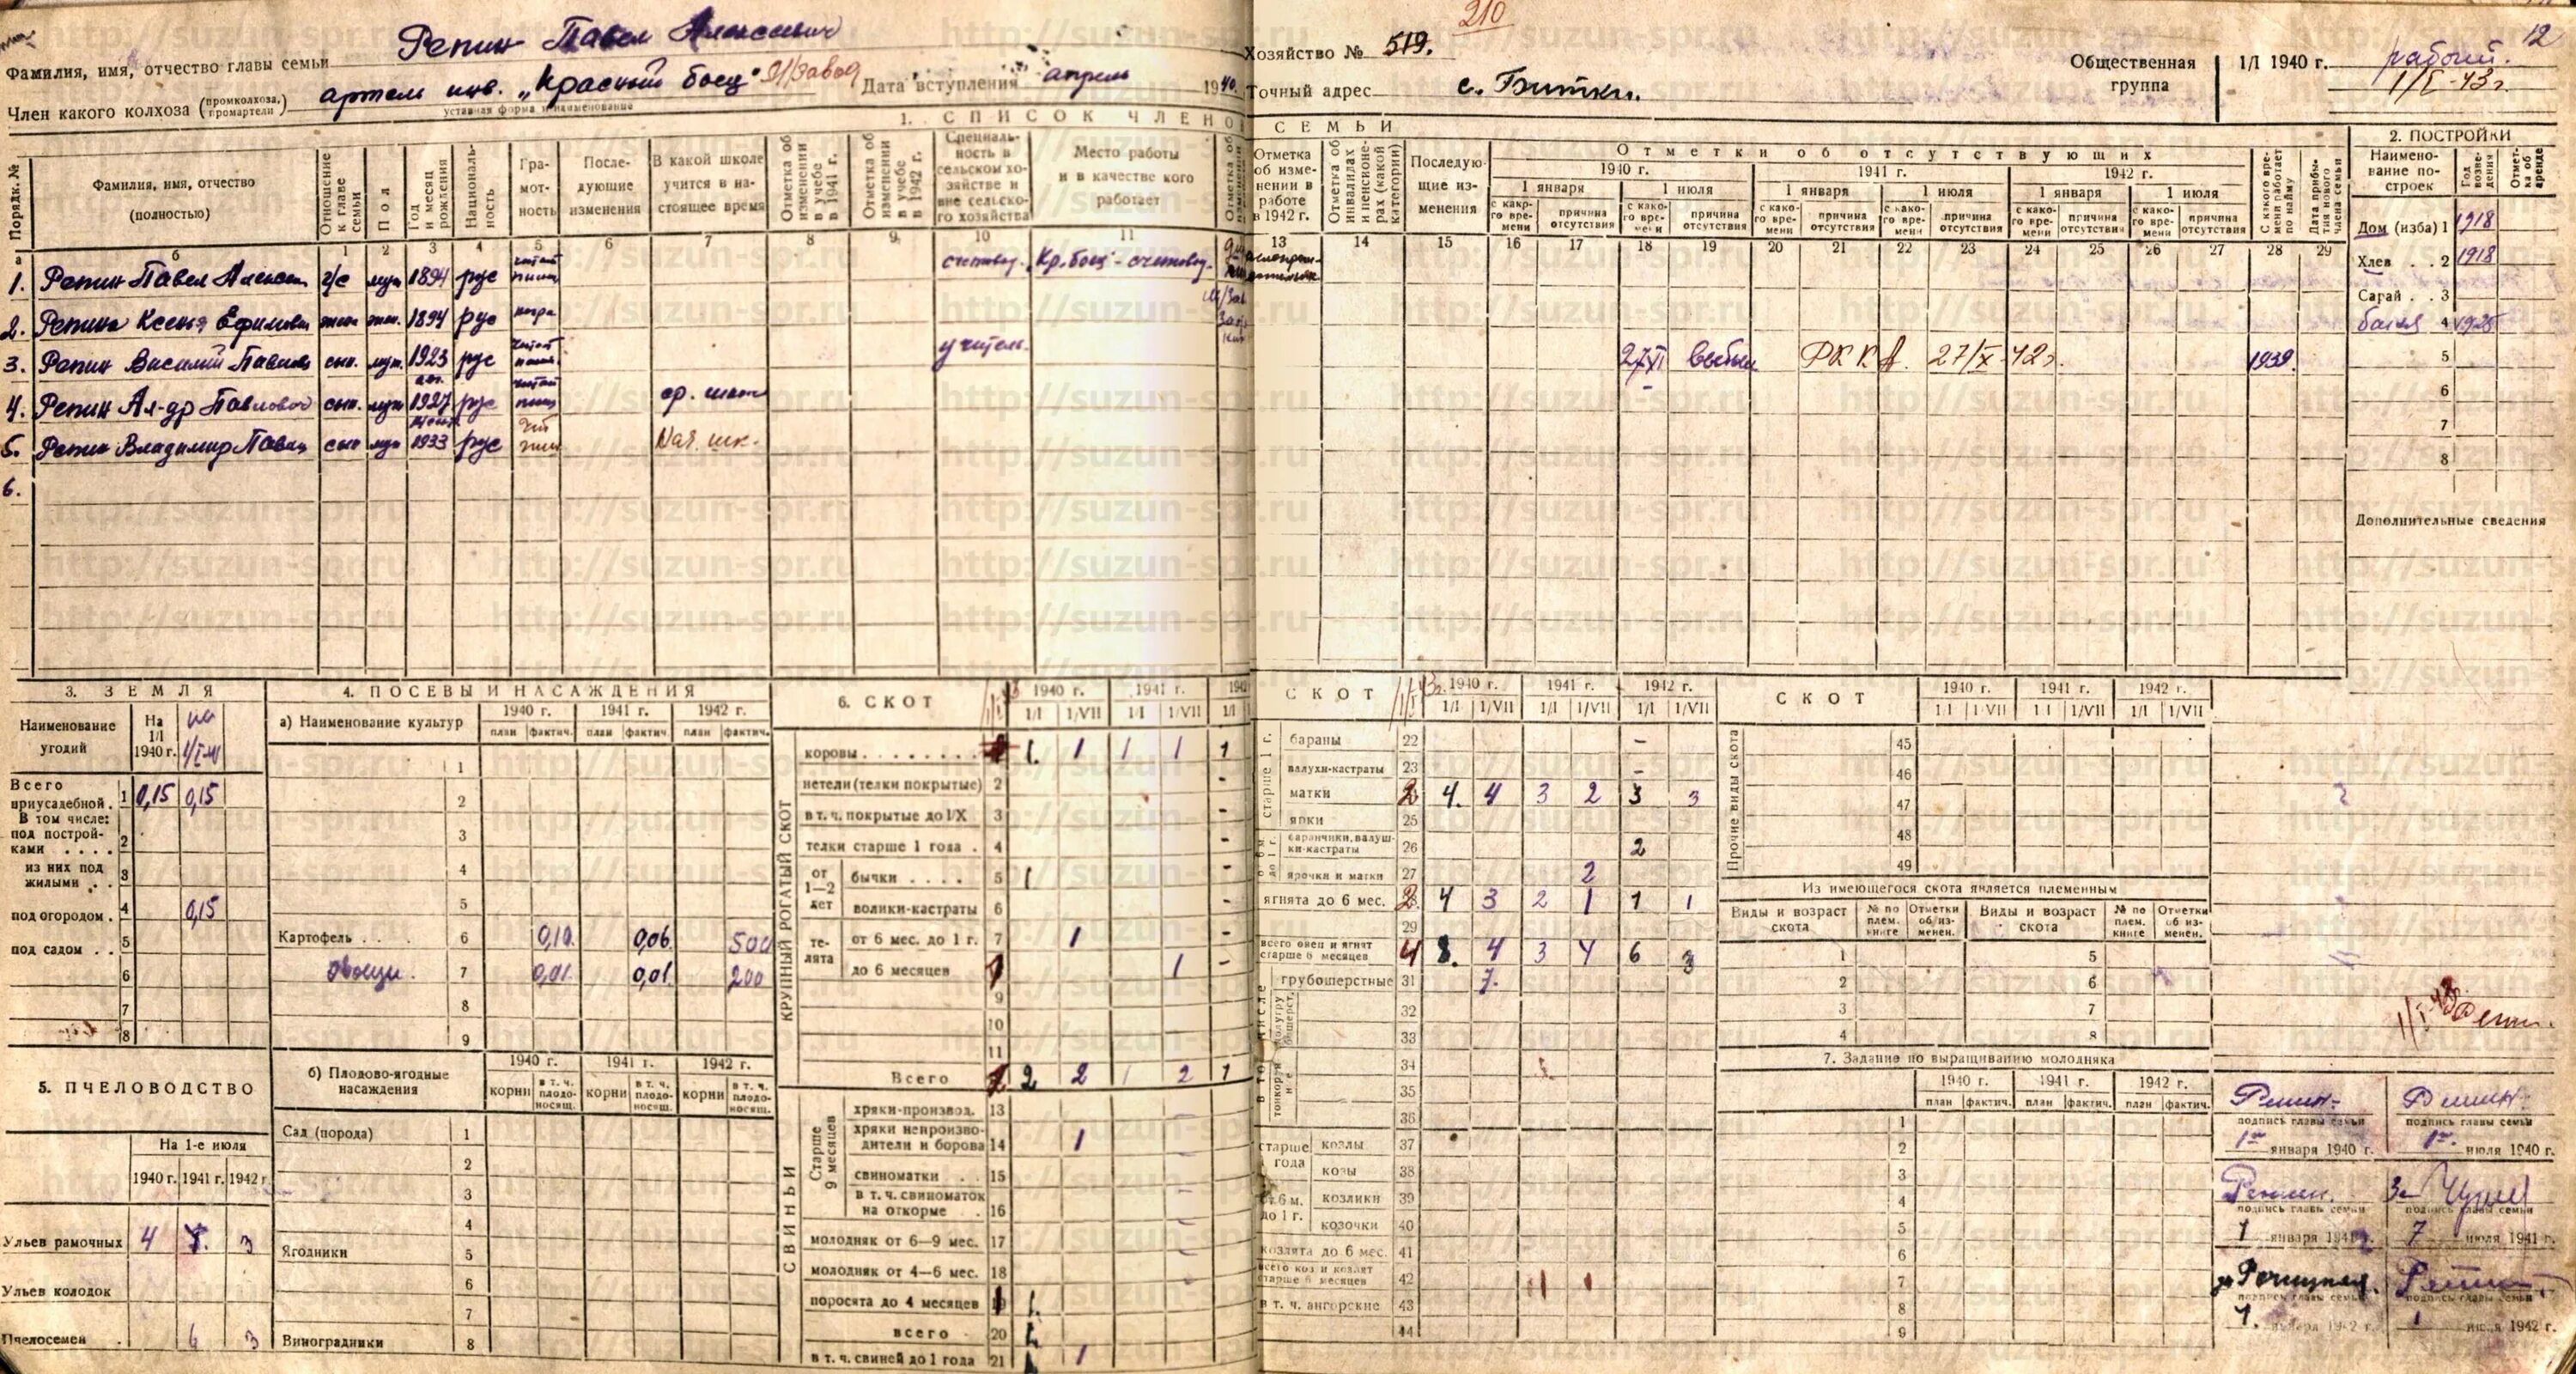 210
12
Фамилия, имя, отчество главы семьи Репин Павел Алексеевич
Хозяйство № 519.
Общественная группа 1/I 1940 г. рабочий.
1/I-43г
Член какого колхоза (промколхоза, промартели) артель инв. „Красный боец" М/завод
уставная форма и наименование
Дата вступления апрель 1940
Точный адрес с. Битки.
1. СПИСОК ЧЛЕНОВ СЕМЬИ
Порядк. №
Фамилия, имя, отчество (полностью)
Отношение к главе семьи
Пол
Год и месяц рождения
Националь-ность
Гра-мот-ность
После-дующие изменения
В какой школе учится в на-стоящее время
Отметка об изменении в учебе в 1941 г.
Отметка об изменении в учебе в 1942 г.
Специаль-ность в сельском хо-зяйстве и вне сельско-го хозяйства
Место работы и в качестве кого работает
Отметка об изме-нении в работе в 1942 г.
Отметка об инвалидах и пенсионе-рах (какой категории)
Последую-щие из-менения
Отметки об отсутствующих
1940 г. 1941 г. 1942 г.
1 января 1 июля 1 января 1 июля 1 января 1 июля
с како-го вре-мени причина отсутствия
С какого вре-мени работает по найму
Дата прибы-тия нового члена семьи
а б 1 2 3 4 5 6 7 8 9 10 11 13 14 15 16 17 18 19 20 21 22 23 24 25 26 27 28 29
1. Репин Павел Алексеев г/с муж 1894 рус читает пишет счетовод. „Кр. боец" - счетовод.
2. Репина Ксенья Ефимовна жена жен. 1894 рус негра
3. Репин Василий Павлов сын. муж. 1923 рус учитель. 27/XI выбыл РККА. 27/X-42г. 1939.
4. Репин Ал-др Павлович сын. муж 1927 рус читает пишет ср. школ
5. Репин Владимир Павлов сын муж 1933 рус Нач. шк.
6.
2. ПОСТРОЙКИ
Наимено-вание по-строек
Год возве-дения
Отмет-ка об аренде
Дом (изба) 1 1918
Хлев . . 2 1918
Сарай . . 3
баня 4 1925
5
6
7
8
Дополнительные сведения
3. ЗЕМЛЯ
Наименование угодий
На 1/I 1940 г.
на 1/I-41
Всего приусадебной . 1 0,15 0,15
В том числе:
под построй-ками . . . . 2
из них под жилыми . . 3
под огородом . 4 0,15
под садом . . 5
6
7
8
4. ПОСЕВЫ И НАСАЖДЕНИЯ
а) Наименование культур
1940 г. 1941 г. 1942 г.
план фактич. план фактич. план фактич.
1
2
3
4
5
Картофель . . . 6 0,10 0,06 500
Овощи. 7 0,01 0,01 200
8
9
б) Плодово-ягодные насаждения
1940 г. 1941 г. 1942 г.
корни в т. ч. плодо-носящ. корни в т. ч. плодо-носящ. корни в т. ч. плодо-носящ.
Сад (порода) 1
2
3
4
Ягодники 5
6
7
Виноградники 8
5. ПЧЕЛОВОДСТВО
На 1-е июля
1940 г. 1941 г. 1942 г.
Ульев рамочных 4 3
Ульев колодок
Пчелосемей . 6 3
6. СКОТ
1940 г. 1941 г.
1/I 1/VII 1/I 1/VII 1/I
КРУПНЫЙ РОГАТЫЙ СКОТ
коровы . . . . . . . . 1 1 1 1 1
нетели (телки покрытые) 2 -
в т. ч. покрытые до 1/X 3 -
телки старше 1 года . 4 -
от 1—2 лет
бычки . . . . 5 1 -
волики-кастраты 6 -
те-лята
от 6 мес. до 1 г. 7 1 -
до 6 месяцев 1 -
9
10
11
Всего 2 2 1 2 1
СВИНЬИ
Старше 9 месяцев
хряки-производ. 13
хряки непроизво-дители и борова 14 1
свиноматки . . 15
в т. ч. свиноматок на откорме . 16
молодняк от 6—9 мес. 17
молодняк от 4—6 мес. 18
поросята до 4 месяцев 1
всего . 20 1
в т. ч. свиней до 1 года 21 1 1
СКОТ
1940 г. 1941 г. 1942 г.
1/I 1/VII 1/I 1/VII 1/I 1/VII
старше 1 г.
бараны 22 -
валухи-кастраты 23 -
матки 4. 4 3 2 3 3
ярки 25
баранчики, валуш-ки-кастраты 26 2
ярочки и матки 27 2
ягнята до 6 мес. 4 3 2 1 1 1
29
всего овец и ягнят старше 6 месяцев 4 8. 4 3 4 6 3
грубошерстные 31 7.
32
33
34
35
36
старше года
козлы 37
козы 38
от 6 м. до 1 г.
козлики 39
козочки 40
козлята до 6 мес. 41
всего коз и козлят старше 6 месяцев 42
в т. ч. ангорские 43
44
СКОТ
1940 г. 1941 г. 1942 г.
1/I 1/VII 1/I 1/VII 1/I 1/VII
Прочие виды скота
45
46
47
48
49
Из имеющегося скота является племенным
Виды и возраст скота
№ по плем. книге
Отметки об из-менен.
Виды и возраст скота
№ по плем. книге
Отметки об из-менен.
1 5
2 6
3 7
4 8
7. Задание по выращиванию молодняка
1940 г. 1941 г. 1942 г.
план фактич. план фактич. план фактич.
1
2
3
4
5
6
7
8
9
1/I-43 Репин.
Репин. Репин.
подпись главы семьи подпись главы семьи
1го января 1940 г. 1го июля 1940 г.
Репин. За
подпись главы семьи подпись главы семьи
1 января 1941 7 июля 1941 г.
Репин
подпись главы семьи подпись главы семьи
1. января 1942 г. 1 июля 1942 г.
http://suzun-spr.ru